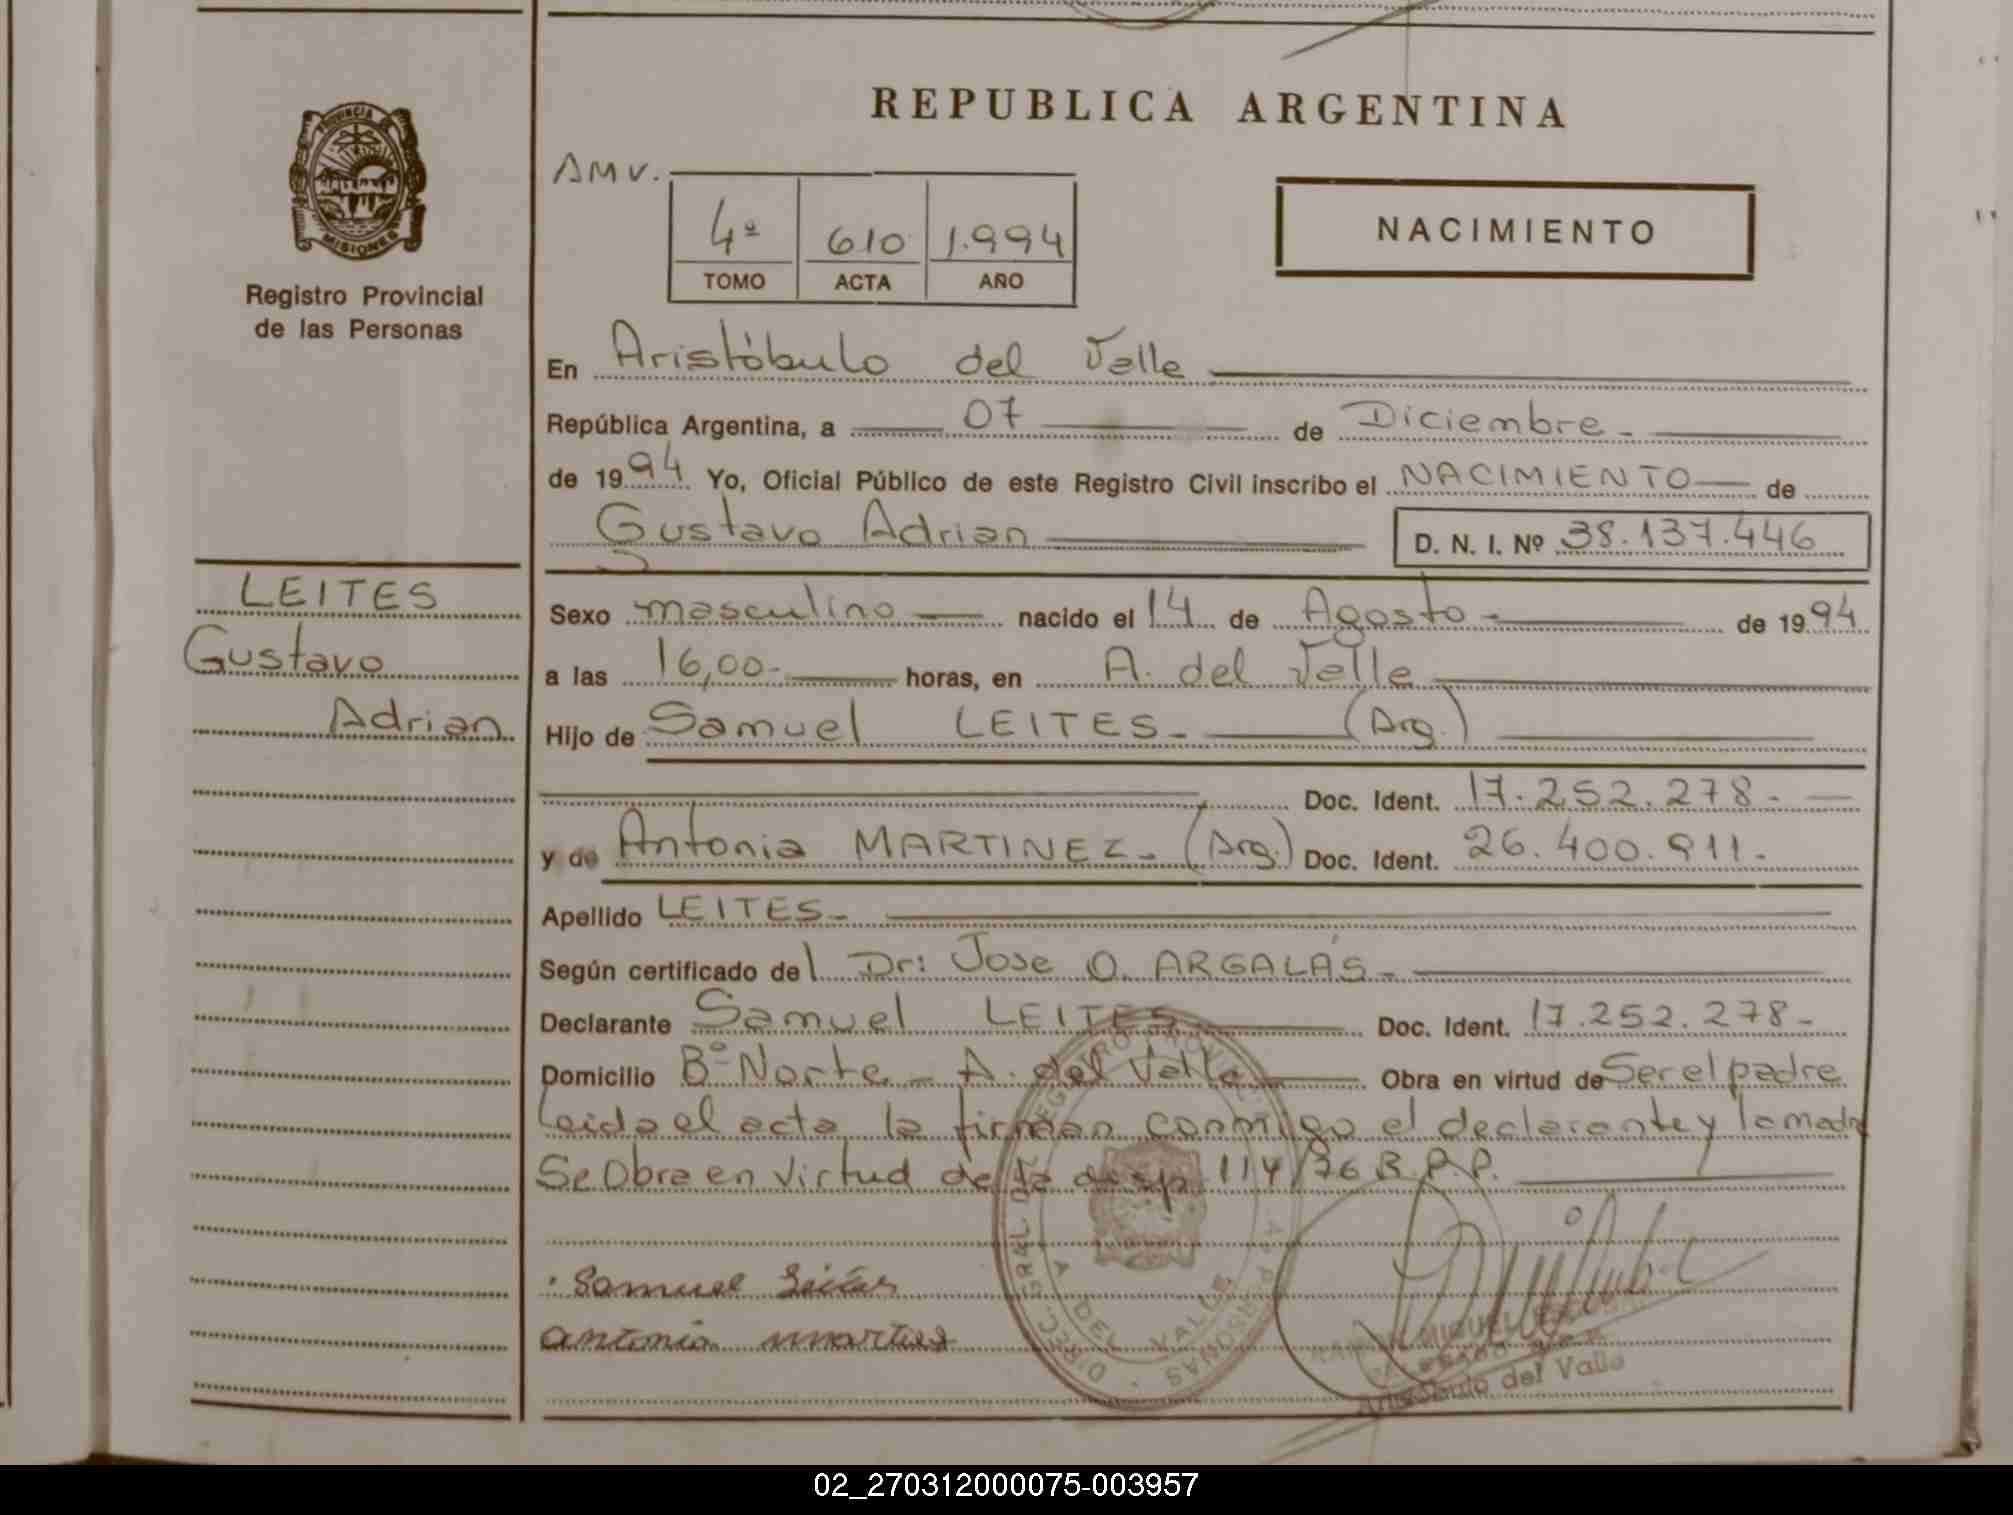 REPUBLICA ARGENTINA
PROVINCIA DE
MISIONES
Registro Provincial
de las Personas
AMV.
4ª 610 1.994
TOMO ACTA AÑO
NACIMIENTO
En Aristóbulo del Valle
República Argentina, a 07 de Diciembre
de 1994 Yo, Oficial Público de este Registro Civil inscribo el NACIMIENTO de
Gustavo Adrian D. N. I. Nº 38.137.446
LEITES
Gustavo
Adrian
Sexo masculino nacido el 14 de Agosto de 1994
a las 16,00 horas, en A. del Valle
Hijo de Samuel LEITES (Arg.)
Doc. Ident. 17.252.278
y de Antonia MARTINEZ (Arg.) Doc. Ident. 26.400.911
Apellido LEITES
Según certificado del Dr: Jose O. ARGALÁS
Declarante Samuel LEITES Doc. Ident. 17.252.278
Domicilio Bº Norte A. del Valle Obra en virtud de Ser el padre
Leida el acta la firman conmigo el declarante y la madre
Se Obra en virtud de la disp 114/76 R.P.P.
Samuel Leites
antonia martines
DIREC. GRAL DEL REGISTRO PROVINC. DE LAS PERSONAS
A DEL VALLE
MIGUEL
Aristobulo del Valle
02_270312000075-003957